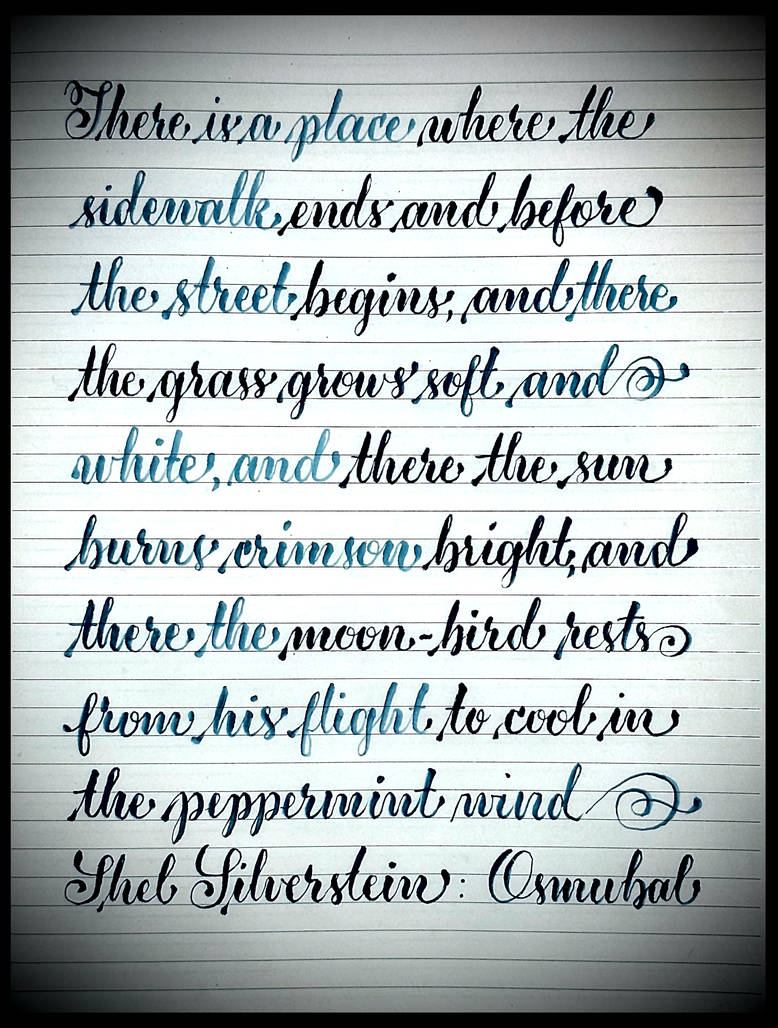 There is a place where the
sidewalk ends and before
the street begins, and there
the grass grows soft and
white, and there the sun
burns crimson bright, and
there the moon-bird rests
from his flight to cool in
the peppermint wind
Shel Silverstein: Osmubal